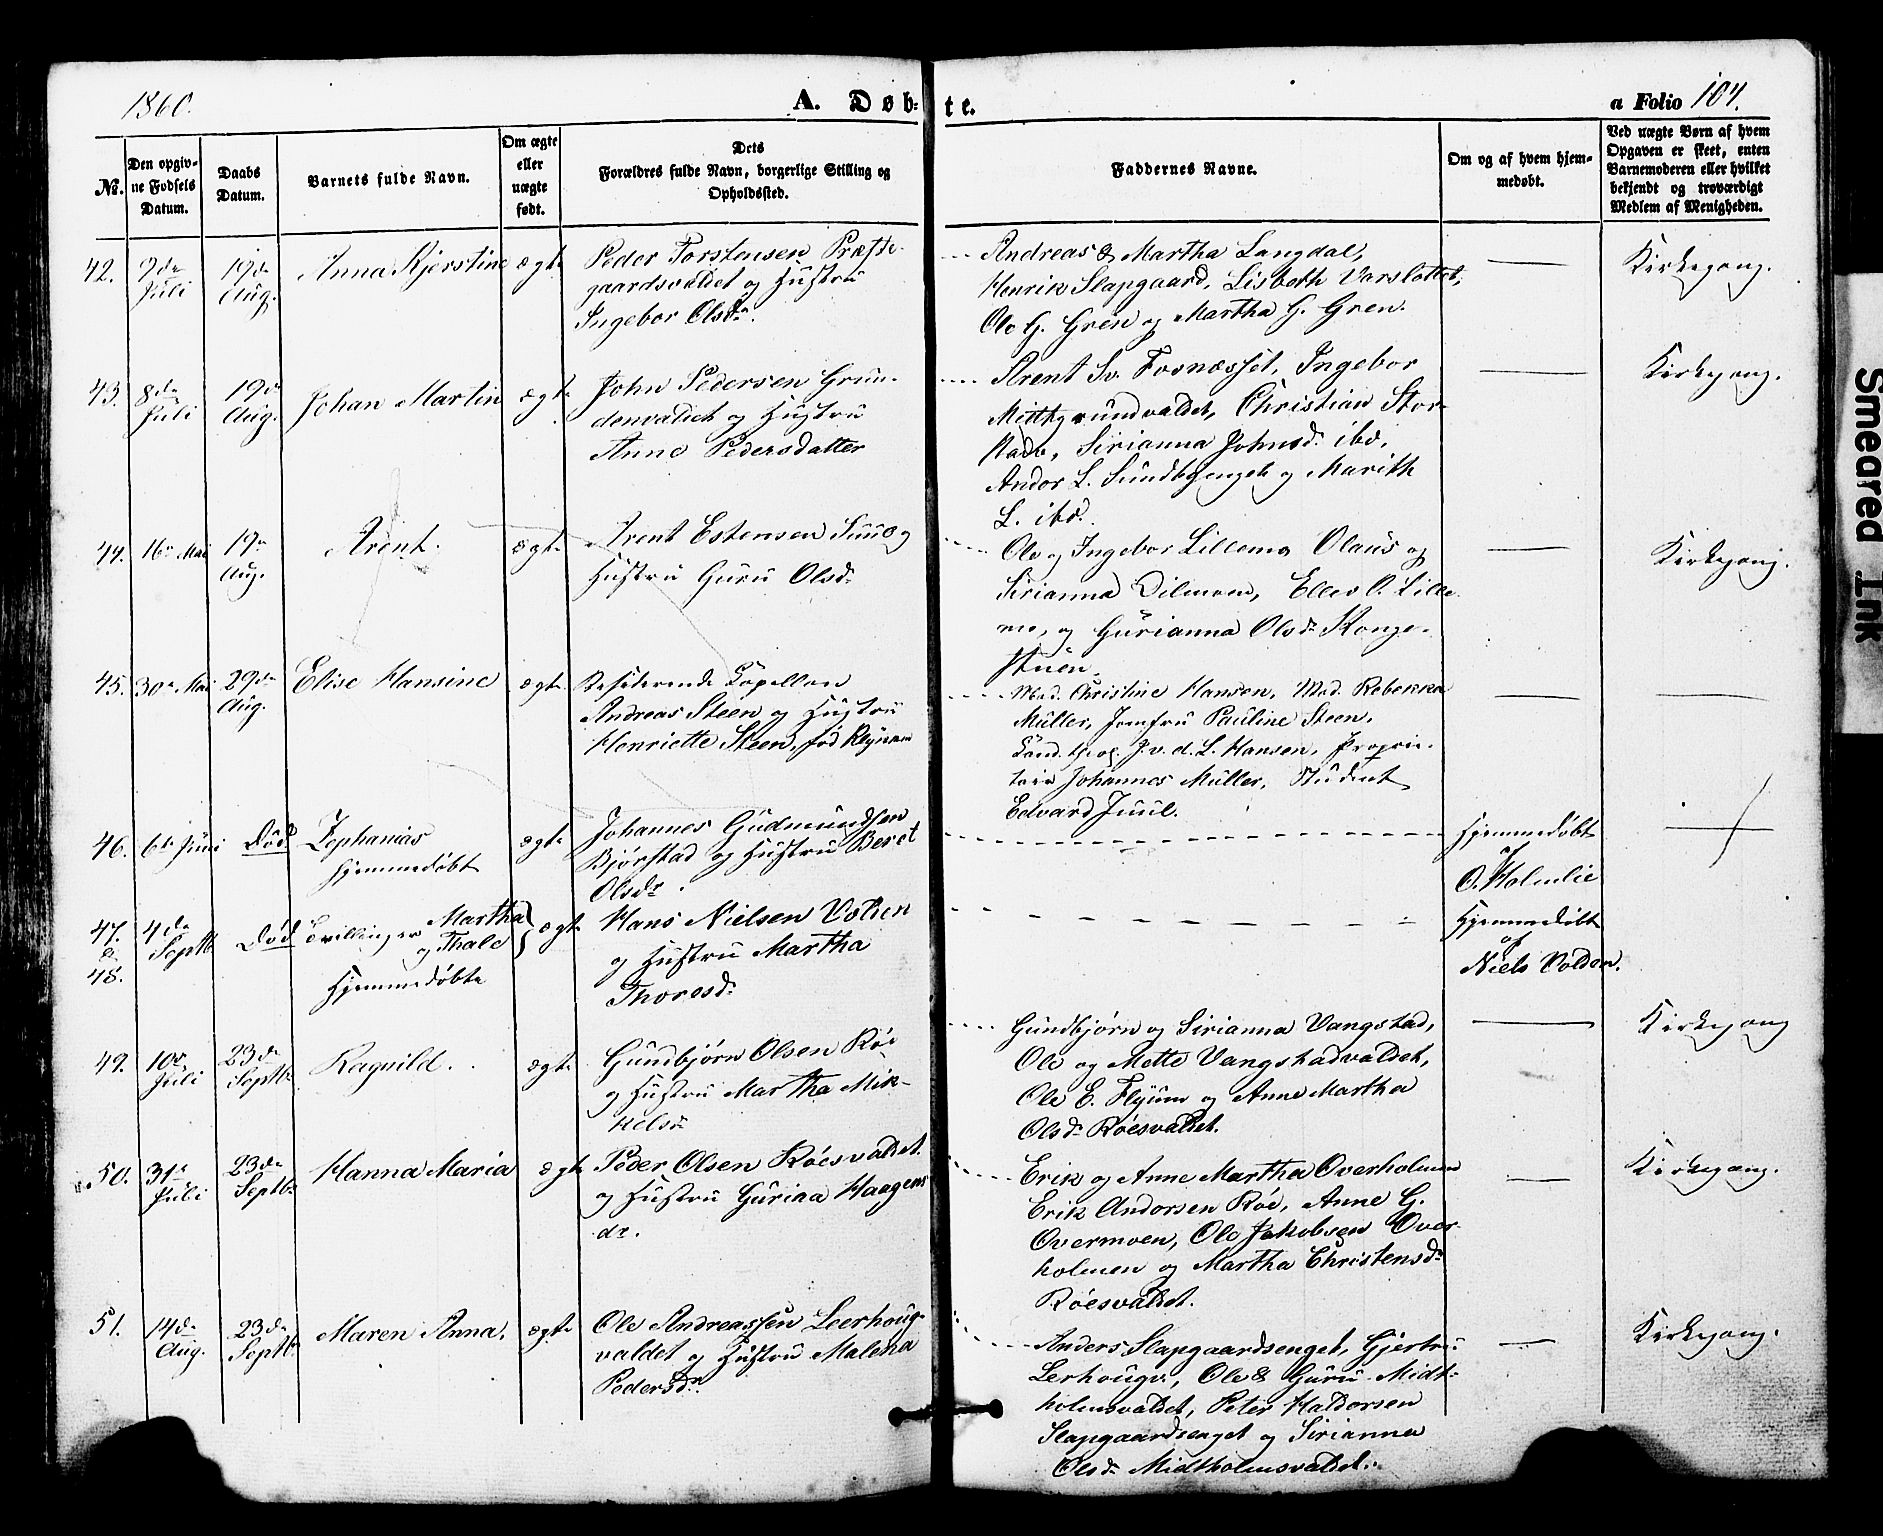 1860.
A. Døb-
te.
a Folio 104.
No.
Den opgiv-
ne Fødsels
Datum.
Daabs
Datum.
Barnets fulde Navn.
Om ægte
eller
uægte
født.
Dets
Forældres fulde Navn, borgerlige Stilling og
Opholdssted.
Faddernes Navne.
Om og af hvem hjem-
medøbt.
Ved uægte Børn af hvem
Opgaven er skeet, enten
Barnemoderen eller hvilket
bekjendt og troværdigt
Medlem af Menigheden.
42.
9de
Juli
19de
Aug.
Anna Kjerstine
ægte
Peder Torstensen Præste-
gaardsvaldet og Hustru
Ingebor Olsdr.
Andreas & Martha Langdal,
Henrik Slapgaard, Lisbeth Varslottet,
Ole G. Gren og Martha G. Gren.
Kirkegang.
43.
8de
Juli
19de
Aug.
Johan Martin
ægte
John Pedersen Grun-
denvaldet og Hustru
Anne Pedersdatter
Arent Sv. Fosnæsset, Ingebor
Midtgrundvaldet, Christian Stor-
stade, Sirianna Johnsd. ibd.
Andor L. Sundbyenget og Marith
L. ibd.
Kirkegang.
44.
16de Mai
19de
Aug.
Arent.
ægte
Arent Estensen Suul og
Hustru Guru Olsdr
Ole og Ingebor Lillemo Olaus og
Sirianna Dilmoen, Ellev O. Lille-
mo, og Gurianna Olsdr Konge-
stuen.
Kirkegang.
45.
30te Mai
29de
Aug.
Elise Hansine
ægte
Residerende Capellan
Andreas Steen og Hustru
Henriette Steen, fød
Mad. Christine Hansen, Mad. Rebekka
Müller, Jomfru Pauline Steen,
Cand. theol. J. v. d. L. Hansen, Proprie-
tair Johannes Müller, Student
Edvard Juul.
46.
6te Juni
Død
Zephanias
Hjemmedøbt
ægte
Johannes Gudmundsen
Bjørstad og Hustru Beret
Olsdr.
Hjemmedøbt
af
O. Holmlie
47.
&
48.
4de
Septbr
Død
Tvillinger Martha
og Thale
Hjemmedøbte
ægte
Hans Nielsen Volden
og Hustru Martha
Thoresdr
Hjemmedøbt
af
Niels Volden.
49.
10de
Juli
23de
Septbr
Ragnild.
ægte
Gundbjørn Olsen Røe
og Hustru Martha Mik-
kelsdr
Gundbjørn og Sirianna Vangstad,
Ole og Mette Vangstadvaldet,
Ole E. Flyum og Anne Martha
Olsdr Røesvaldet.
Kirkegang
50.
31te
Juli
23de
Septbr
Hanna Maria
ægte
Peder Olsen Røesvaldet
og Hustru Gurina Haagens
dr.
Erik og Anne Martha Overholmen
Erik Andorsen Røe, Anne G.
Overmoen, Ole Jakobsen Over-
holmen og Martha Christensdr
Røesvaldet.
Kirkegang.
51.
14de
Aug.
23de
Septbr
Maren Anna.
ægte
Ole Andreassen Leerhoug-
valdet og Hustru Malena
Pedersdr.
Anders Slapgaardsenget, Gjertru
Lerhougv., Ole & Guru Midt-
holmsvaldet, Peter Haldorsen
Slapgaardsenget og Sirianna
Olsdr Midtholmsvaldet.
Kirkegang.
Smeared Ink